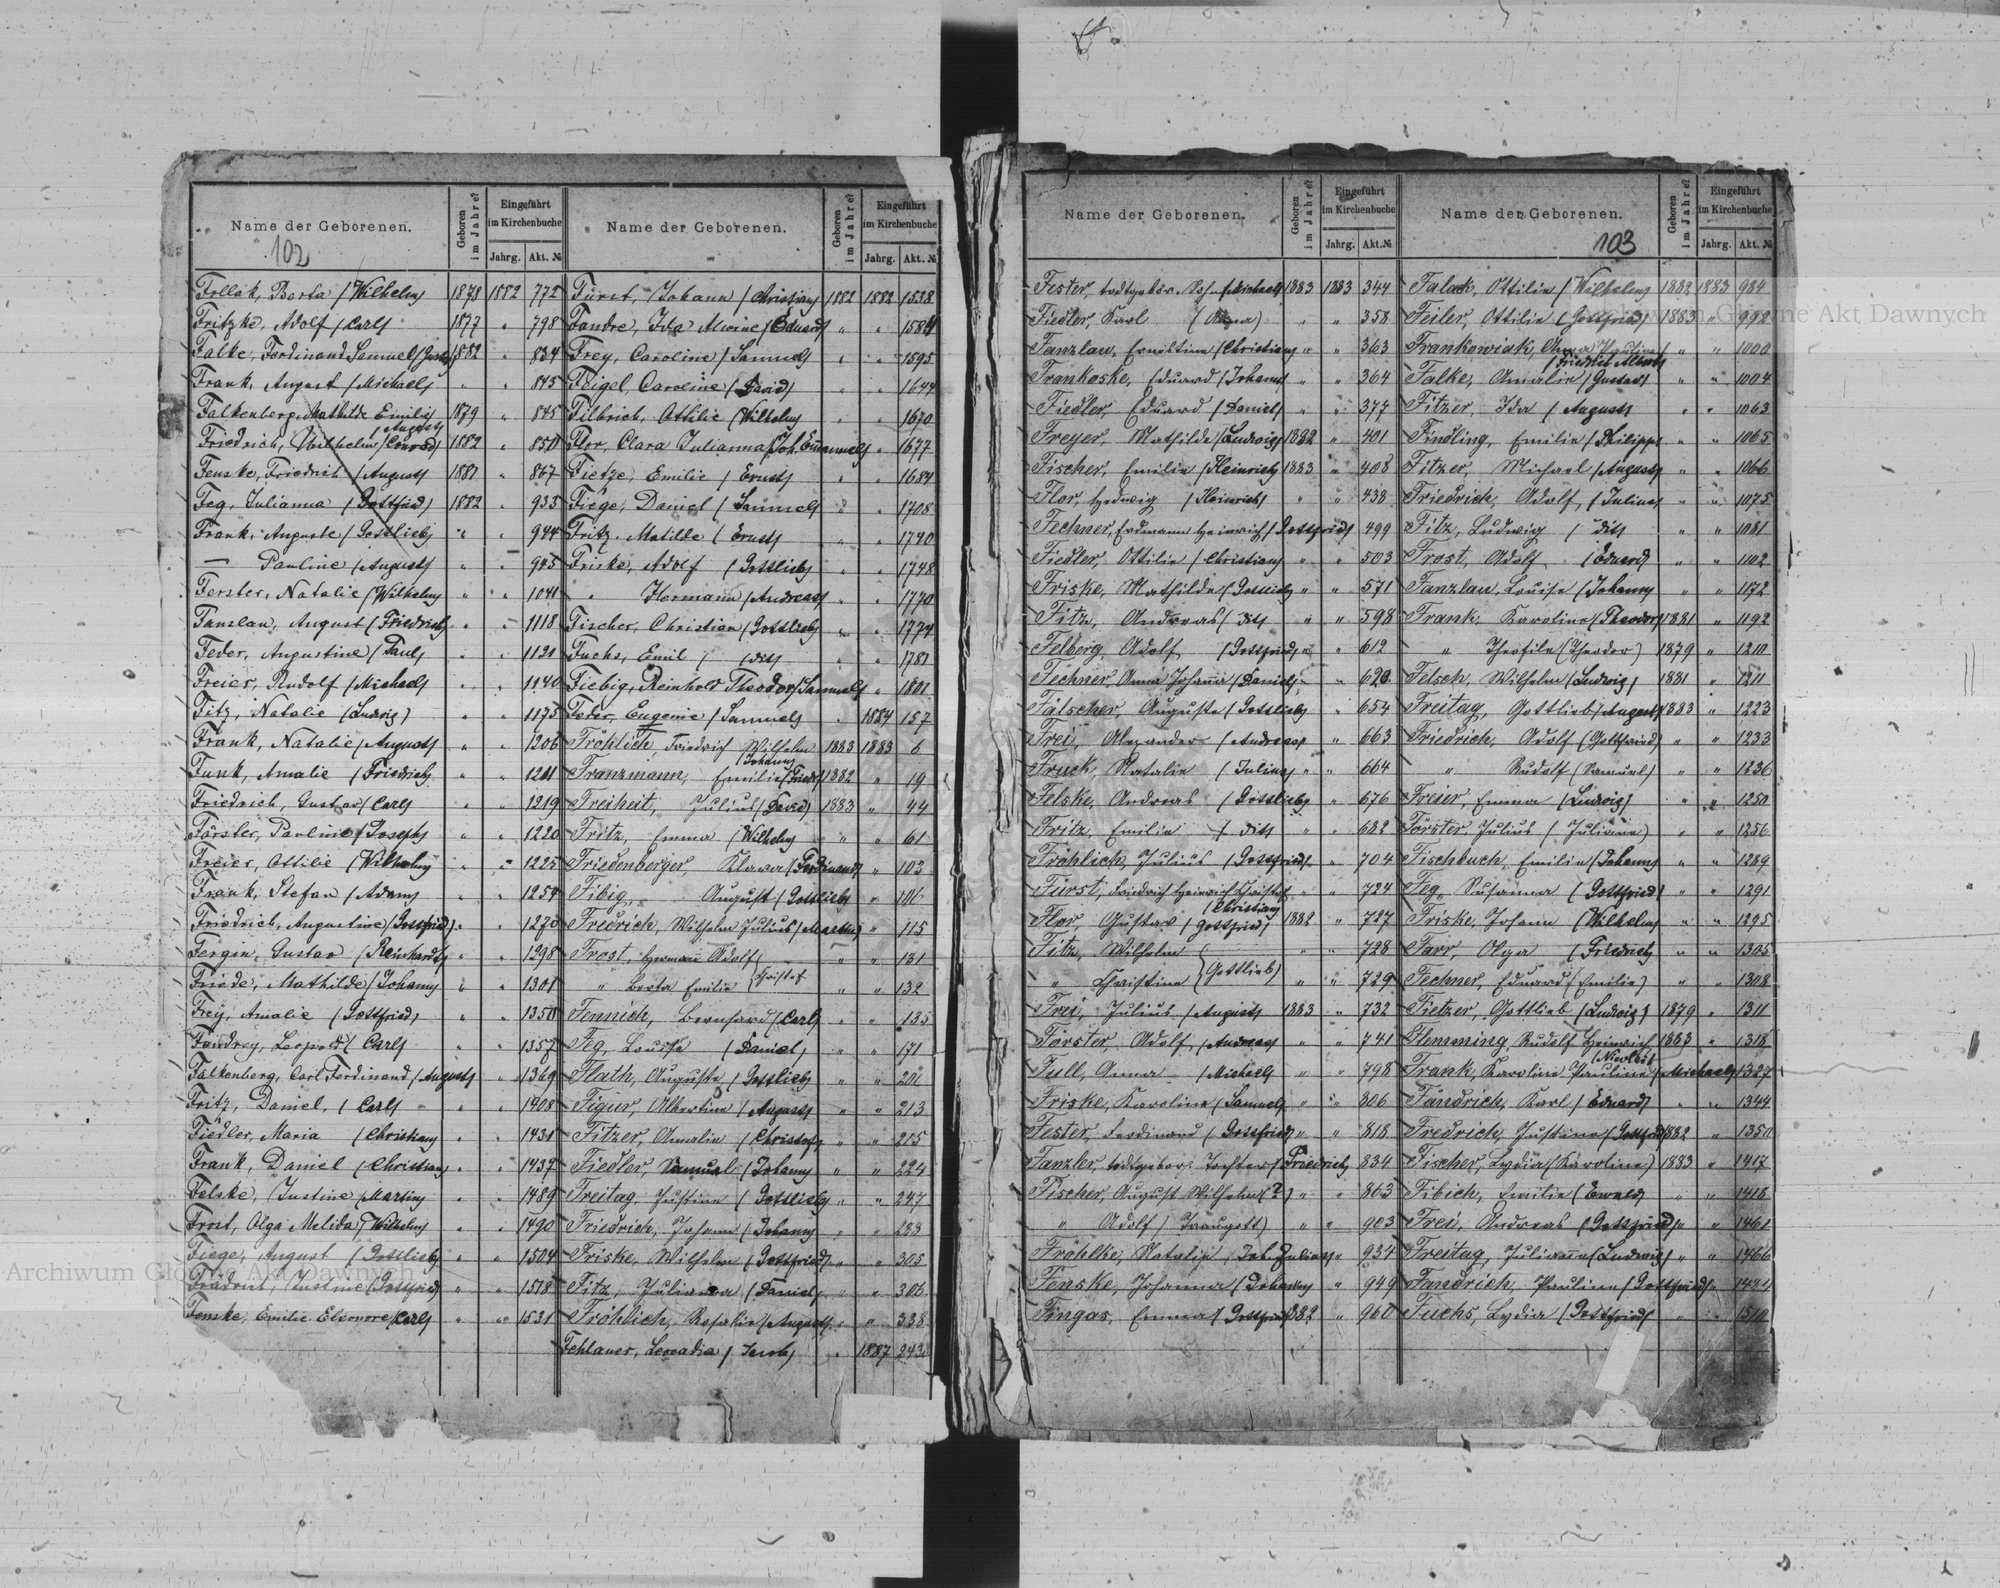 Name der Geborenen. Geboren im Jahre? Eingeführt im Kirchenbuche Jahrg. Akt. №
102
Follak, Berta (Wilhelm) 1878 1882 772
Fritzke, Adolf (Carl) 1877 " 798
Falke, Ferdinand Samuel (Gustav) 1882 " 834
Frank, August (Michael) " " 845
Falkenberg, Mathilde Emilie (August) 1879 " 845
Friedrich, Wilhelm (Conrad) 1882 " 850
Fenske, Friedrich (August) 1881 " 867
Feg, Julianna (Gottfried) 1882 " 935
Frank, Auguste (Gottlieb) " " 944
— Pauline (August) " " 945
Forster, Natalie (Wilhelm) " " 1041
Fanslau, August (Friedrich) " " 1118
Feder, Augustine (Paul) " " 1121
Freier, Rudolf (Michael) " " 1140
Fitz, Natalie (Ludwig) " " 1175
Frank, Natalie (August) " " 1206
Funk, Amalie (Friedrich) " " 1201
Friedrich, Gustav (Carl) " " 1219
Förster, Pauline (Joseph) " " 1220
Freier, Ottilie (Wilhelm) " " 1225
Frank, Stefan (Adam) " " 1254
Friedrich, Augustine (Gottfried) " " 1270
Fergin, Gustav (Reinhardt) " " 1298
Friede, Mathilde (Johann) " " 1301
Frey, Amalie (Gottfried) " " 1350
Fandrey, Leopold (Carl) " " 1357
Falkenberg, Carl Ferdinand (August) " 1369
Fritz, Daniel, (Carl) " " 1408
Fiedler, Maria (Christian) " " 1431
Frank, Daniel (Christian) " " 1437
Felske, Justine (Martin) " " 1489
Frost, Olga Melida (Wilhelm) " " 1490
Fiege, August (Gottlieb) " " 1504
Justine (Gottfried) " " 1518
Fenske, Emilie Eleonore (Carl) " " 1531
Name der Geborenen. Geboren im Jahre? Eingeführt im Kirchenbuche Jahrg. Akt. №
Fürst, Johann (Christian) 1882 1882 1538
Fandre, Ida Alwine (Eduard) " " 1584
Frey, Caroline (Samuel) " " 1595
Feigel, Caroline (David) " " 1644
Filbrich, Ottilie (Wilhelm) " " 1670
Flor, Clara Julianna (Joh. Emmanuel) " 1677
Fietze, Emilie (Ernst) " " 1684
Fiege, Daniel (Samuel) " " 1708
Fritz, Matilde (Ernst) " " 1740
Friske, Adolf (Gottlieb) " " 1748
" Hermann (Andreas) " " 1770
Fischer, Christian (Gottlieb) " " 1774
Fuchs, Emil (dit) " " 1781
Fiebig, Reinhold Theodor (Samuel) " 1801
Feder, Eugenie (Samuel) " 1884 157
Fröhlich, Friedrich Wilhelm (Johann) 1883 1883 6
Franzmann, Emilie (Friedr) 1882 " 19
Freiheit, Julius (David) 1883 " 44
Fritz, Emma (Wilhelm) " " 61
Friedenberger, Klara (Ferdinand) " 103
Fibig, August (Gottlieb) " 106
Fredrich, Wilhelm Julius (Martin) " 115
Frost, Hermann Adolf " " 131
" Berta Emilie (Christof) " " 132
Fennich, Bernhard (Carl) " " 135
Feg, Louise (Daniel) " " 171
Flath, Auguste (Gottlieb) " " 211
Figur, Albertine (August) " " 213
Fitzer, Amalie (Christof) " " 215
Fiedler, Samuel (Johann) " " 224
Freitag Justine (Gottlieb) " " 247
Friedrich, Johann (Johann) " " 288
Friske, Wilhelm (Gottfried) " " 305
Fitz, Julianna (Daniel) " " 306
Fröhlich, Rosalie (August) " " 338
Fehlauer, Leocadia (Jacob) " 1887 2430
Name der Geborenen. Geboren im Jahre? Eingeführt im Kirchenbuche Jahrg. Akt. №
Fester, todtgebor. Sohn (Michael) 1883 1883 344
Fiedler, Karl " " 358
Fanzlau, Ernestine (Christian) " " 363
Frankoske, Eduard (Johann) " " 364
Fiedler, Eduard (Daniel) " " 377
Freyer, Mathilde (Ludwig) 1882 " 401
Fischer, Emilie (Heinrich) 1883 " 408
Flor, Hedwig (Heinrich) " " 438
Fechner, Erdmann Heinrich (Gottfried) 499
Fiedler, Ottilie (Christian) " " 503
Friske, Mathilde (Gottlieb) " " 571
Fitz, Andreas (dit) " " 598
Felberg Adolf (Gottfried) " " 612
Fechner, Anna Johanna (Daniel) " 620
Fätscher, Auguste (Gottlieb) " 654
Frei, Alexander (Andreas) " 663
Fruck, Natalie (Julius) " " 664
Felske, Andreas (Gottlieb) " 676
Fritz, Emilie (dit) " " 682
Fröhlich, Julius (Gottfried) " 704
Fürst, Friedrich Heinrich Christof (Christian) " " 724
Flor, Gustav (Gottfried) 1882 " 727
Fitz, Wilhelm " " 728
" Christine (Gottlieb) " " 729
Frei, Julius (August) 1883 " 732
Förster, Adolf, (Andreas) " " 741
Full, Anna (Michael) " " 798
Friske, Karoline (Samuel) " " 806
Fester, Ferdinand (Gottfried) " " 818
Fanzler, todtgebor. Tochter (Friedrich) 834
Fischer, August Wilhelm (?) " " 863
" Adolf (Traugott) " " 903
Fröhlke, Natalie (Joh. Julius) " 934
Fenske, Johanna (Johann) " 949
Fingas, Emma (Gottfried) 1882 " 960
Name der Geborenen. Geboren im Jahre? Eingeführt im Kirchenbuche Jahrg. Akt. №
103
Falack, Ottilie (Wilhelm) 1882 1883 984
Feiler, Ottilie (Gottfried) 1883 " 992
Frankowiak, Anna (Friedrich Albert) " " 1000
Falke, Amalie (Gustav) " " 1004
Fitzer, Ida (August) " " 1063
Findling, Emilie (Philipp) " " 1065
Fitzer, Michael (August) " " 1066
Friedrich, Adolf, (Julius) " " 1075
Fitz, Ludwig (dit) " " 1081
Frost, Adolf (Eduard) " " 1102
Fanzlau, Louise (Johann) " " 1172
Frank, Karoline (Theodor) 1881 " 1192
" Theofile (Theodor) 1879 " 1210
Felsch, Wilhelm (Ludwig) 1881 " 1211
Freitag, Gottlieb (August) 1883 " 1223
Friedrich, Adolf (Gottfried) " " 1233
" Rudolf (Samuel) " " 1236
Freier, Emma (Ludwig) " " 1250
Förster, Julius (Julianne) " " 1256
Fischbuch, Emilie (Johann) " " 1289
Feg, Susanna (Gottfried) " " 1291
Friske, Johann (Wilhelm) " " 1295
Farr, Olga (Friedrich) " " 1305
Fechner, Eduard (Emilie) " " 1308
Fietzer, Gottlieb (Ludwig) 1879 " 1311
Flemming, Rudolf Heinrich (Nicolai) 1883 " 1318
Frank, Karoline Pauline (Michael) 1327
Fandrich, Karl (Eduard) " " 1344
Fredrich, Justine (Gottfried) 1882 " 1350
Fischer, Lydia (Karoline) 1883 " 1417
Fibich, Emilie (Ewald) " " 1418
Frei, Andreas (Gottfried) " " 1461
Freitag, Julianne (Ludwig) " " 1466
Fandrich, Pauline (Gottfried) "
Fuchs, Lydia (Gottfried) " " 1510
Archiwum Główne Akt Dawnych
Archiwum Główne Akt Dawnych